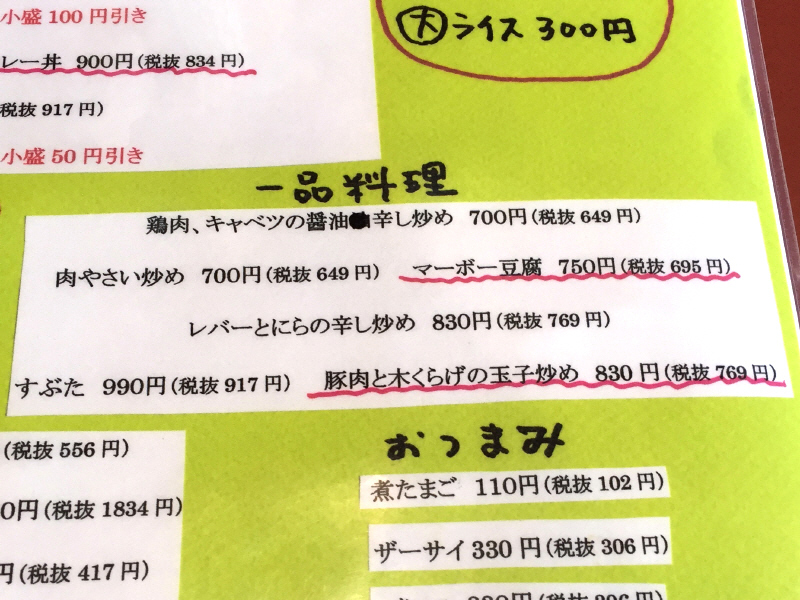 小盛 100 円引き
大 ライス 300円
レー丼 900円(税抜 834 円)
税抜 917 円)
小盛 50 円引き
一品料理
鶏肉、キャベツの醤油 辛し炒め 700円(税抜 649 円)
肉やさい炒め 700円(税抜 649 円) マーボー豆腐 750円(税抜 695 円)
レバーとにらの辛し炒め 830円(税抜 769 円)
すぶた 990円(税抜 917 円) 豚肉と木くらげの玉子炒め 830 円(税抜 769 円)
(税抜 556 円)
0円(税抜 1834 円)
円(税抜 417 円)
おつまみ
煮たまご 110円(税抜 102 円)
ザーサイ 330 円(税抜 306 円)